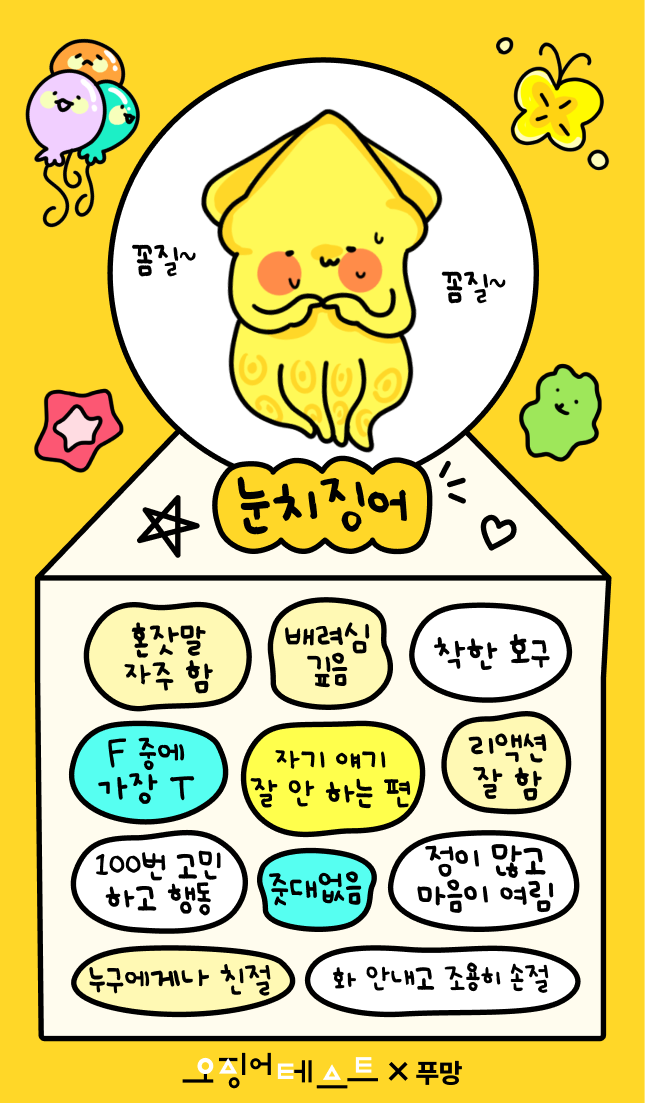 꼼질~
꼼질~
눈치징어
혼잣말
자주 함
배려심
깊음
착한 호구
F 중에
가장 T
자기 얘기
잘 안 하는 편
리액션
잘 함
100번 고민
하고 행동
줏대없음
정이 많고
마음이 여림
누구에게나 친절
화 안내고 조용히 손절
오징어테스트 × 푸망